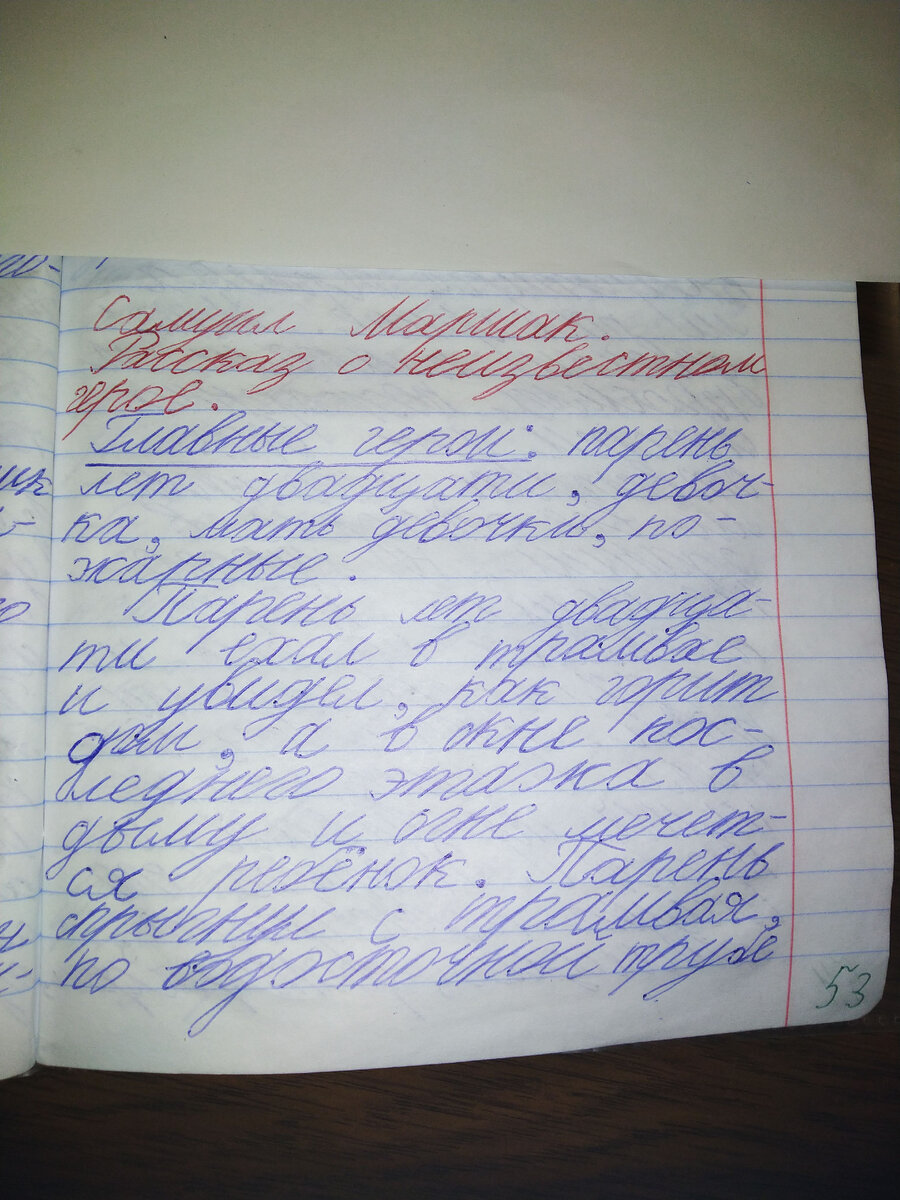 Самуил Маршак.
Рассказ о неизвестном
герое.
Главные герои: парень
лет двадцати, девоч-
ка, мать девочки, по-
жарные.
Парень лет двадца-
ти ехал в трамвае
и увидел, как горит
дом, а в окне пос-
леднего этажа в
дыму и огне мечет-
ся ребёнок. Парень
спрыгнул с трамвая,
по водосточной трубе
53